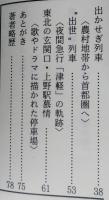 出かせぎ列車
〈農村地帯から首都圏へ〉……38
"出世"列車
〈夜間急行「津軽」の軌跡〉……53
東北の玄関口・上野駅慕情
〈歌やドラマに描かれた停車場〉……61
あとがき……75
著者略歴……78